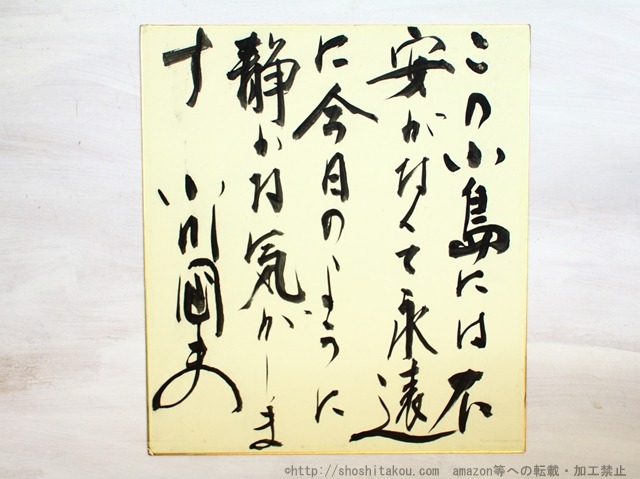 この小島には不
安がなくて永遠
に今日のように
静かな気がしま
す
小川國夫
©http://shoshitakou.com amazon等への転載・加工禁止